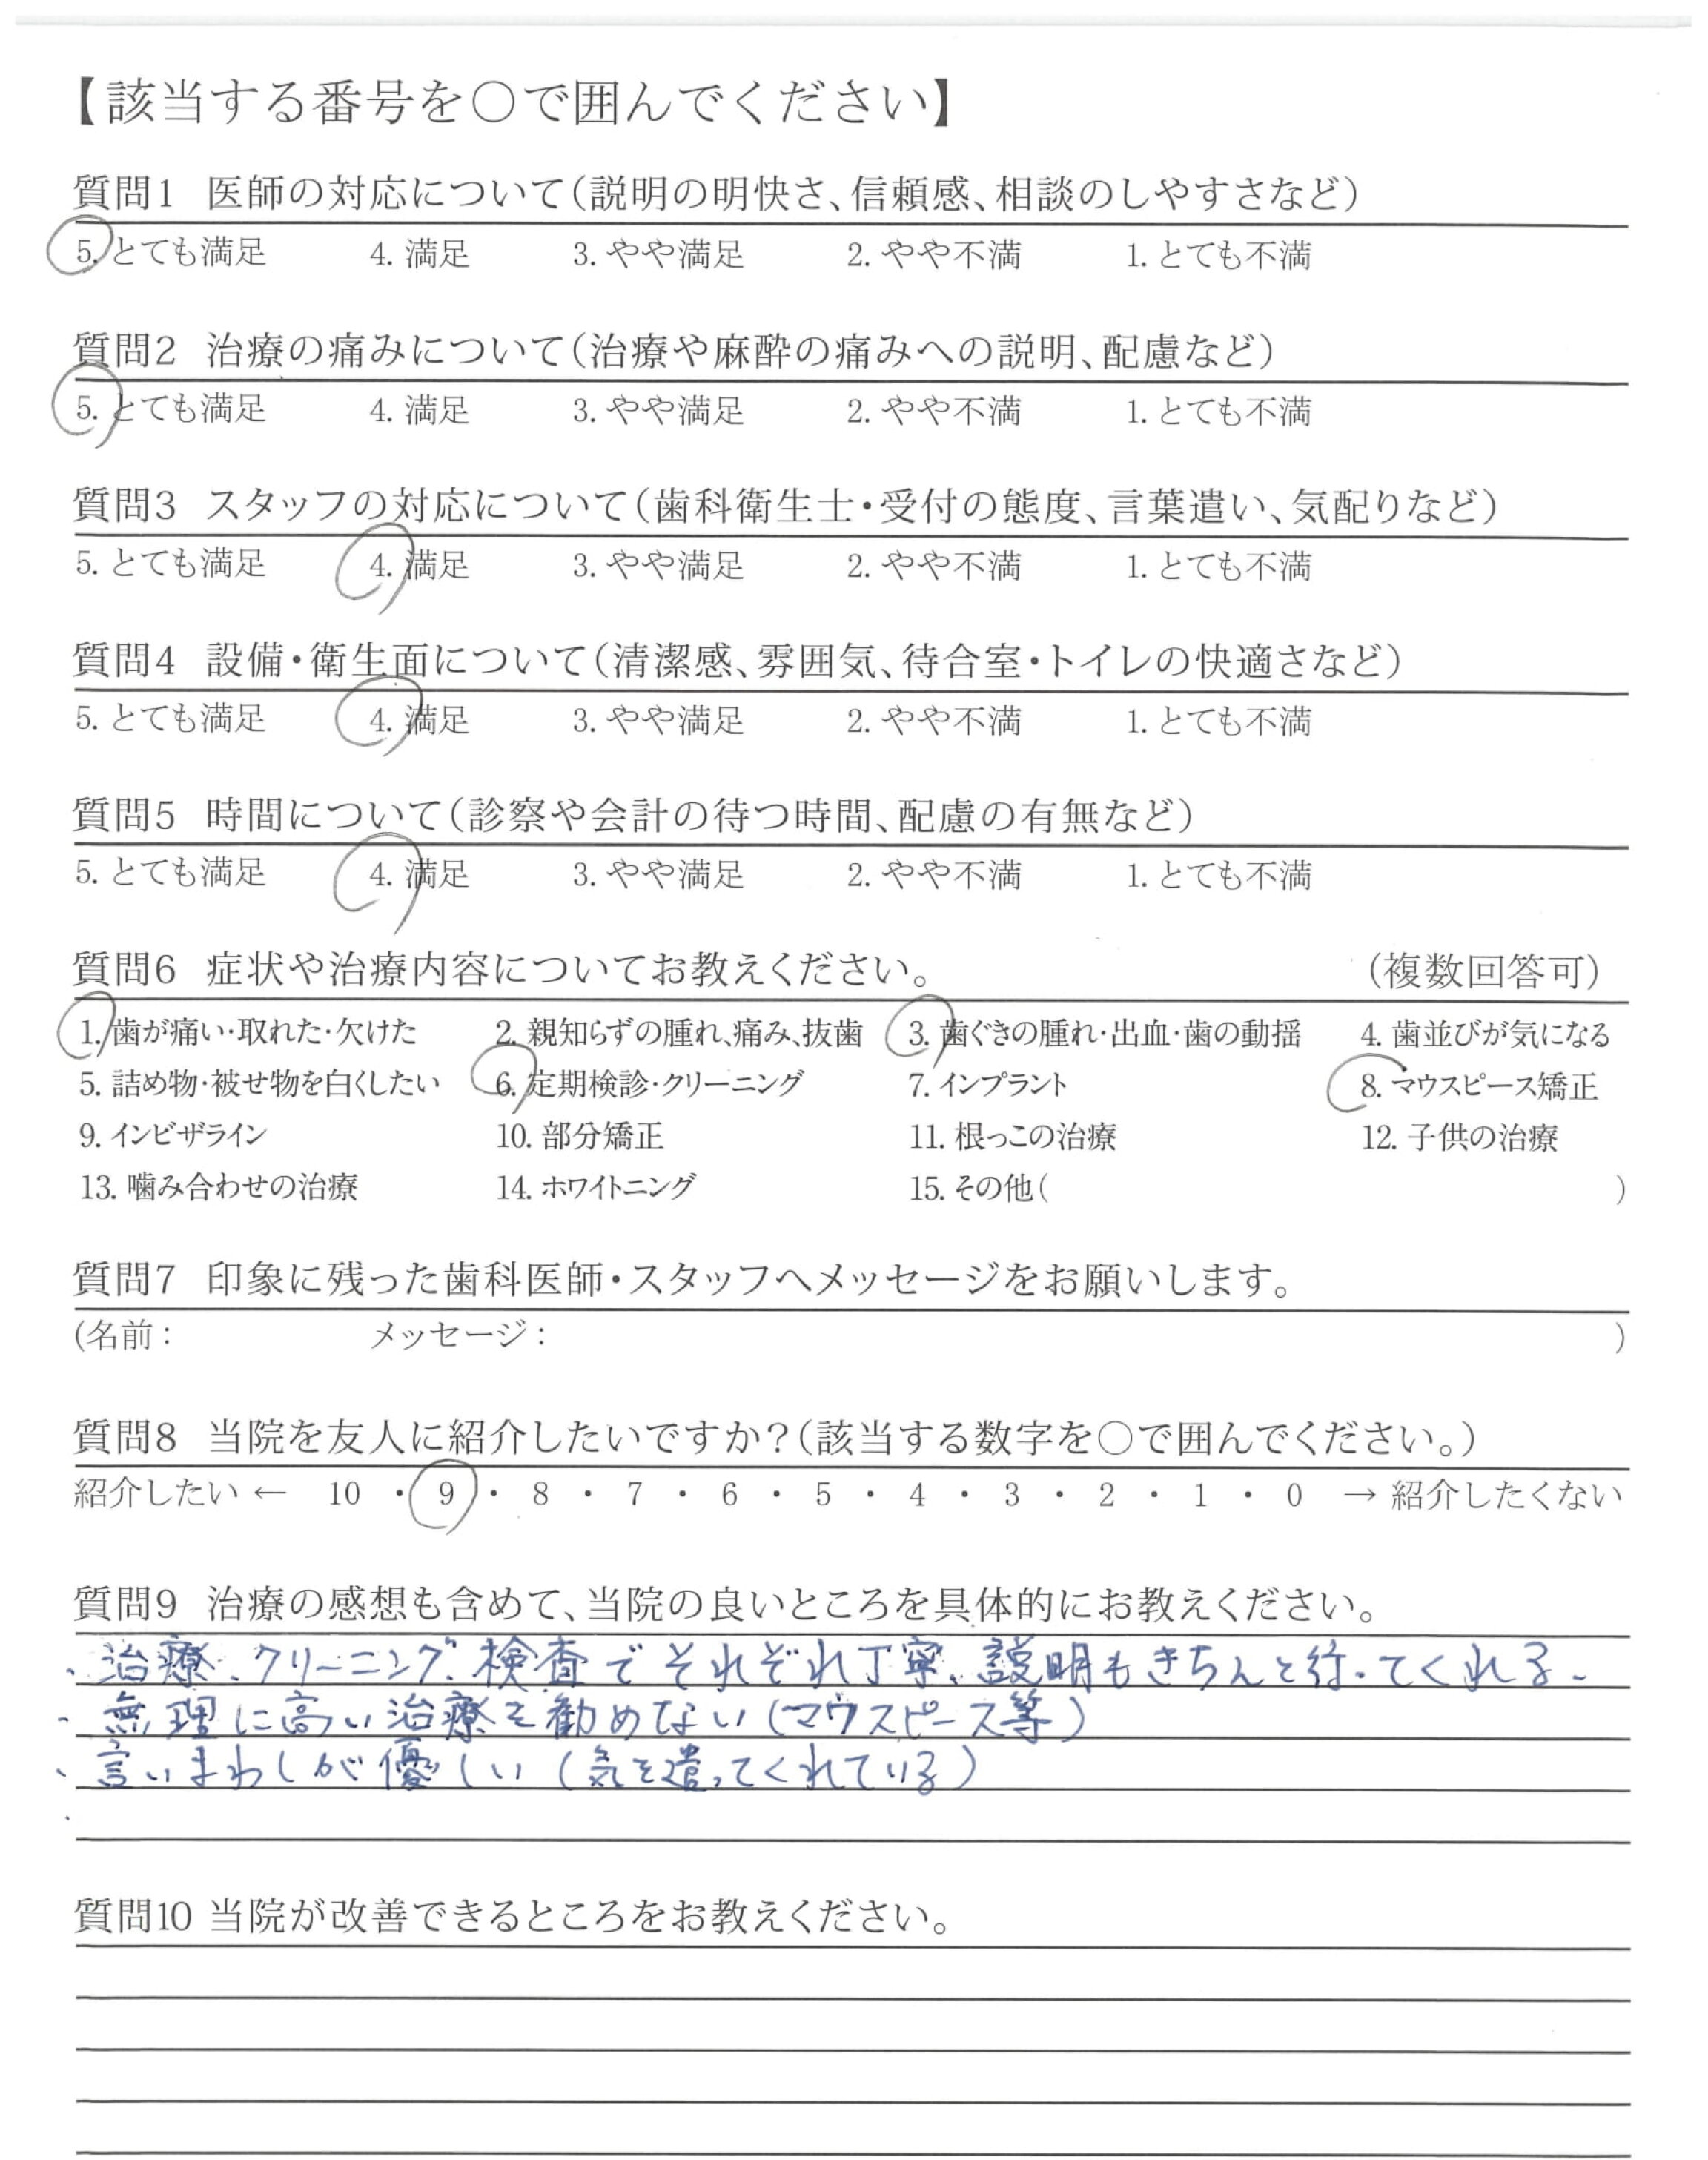 【該当する番号を〇で囲んでください】
質問1 医師の対応について(説明の明快さ、信頼感、相談のしやすさなど)
5. とても満足 4. 満足 3. やや満足 2. やや不満 1. とても不満
質問2 治療の痛みについて(治療や麻酔の痛みへの説明、配慮など)
5. とても満足 4. 満足 3. やや満足 2. やや不満 1. とても不満
質問3 スタッフの対応について(歯科衛生士・受付の態度、言葉遣い、気配りなど)
5. とても満足 4. 満足 3. やや満足 2. やや不満 1. とても不満
質問4 設備・衛生面について(清潔感、雰囲気、待合室・トイレの快適さなど)
5. とても満足 4. 満足 3. やや満足 2. やや不満 1. とても不満
質問5 時間について(診察や会計の待つ時間、配慮の有無など)
5. とても満足 4. 満足 3. やや満足 2. やや不満 1. とても不満
質問6 症状や治療内容についてお教えください。 (複数回答可)
1. 歯が痛い・取れた・欠けた 2. 親知らずの腫れ、痛み、抜歯 3. 歯ぐきの腫れ・出血・歯の動揺 4. 歯並びが気になる
5. 詰め物・被せ物を白くしたい 6. 定期検診・クリーニング 7. インプラント 8. マウスピース矯正
9. インビザライン 10. 部分矯正 11. 根っこの治療 12. 子供の治療
13. 噛み合わせの治療 14. ホワイトニング 15. その他( )
質問7 印象に残った歯科医師・スタッフへメッセージをお願いします。
(名前: メッセージ: )
質問8 当院を友人に紹介したいですか?(該当する数字を〇で囲んでください。)
紹介したい ← 10 ・ 9 ・ 8 ・ 7 ・ 6 ・ 5 ・ 4 ・ 3 ・ 2 ・ 1 ・ 0 → 紹介したくない
質問9 治療の感想も含めて、当院の良いところを具体的にお教えください。
・治療、クリーニング、検査でそれぞれ丁寧、説明もきちんと行ってくれる。
・無理に高い治療を勧めない(マウスピース等)
・言いまわしが優しい(気を遣ってくれている)
・
質問10 当院が改善できるところをお教えください。